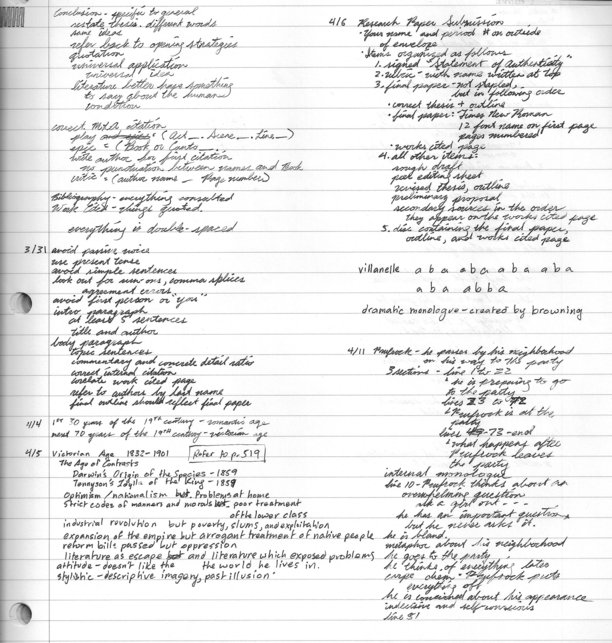 Conclusion - specific to general
restate thesis - different words
same ideas
refer back to opening strategies
quotation
universal application
universal idea
literature better hope something
to say about the human
condition
correct MLA citation
play = (Act __. Scene __. Line __)
epic = (Book or Canto __. __)
write author for first citation
no punctuation between names and Book
critic = (author name __ Page number)
Bibliography - everything consulted
Work Cited - things quoted.
everything is double-spaced
3/31 avoid passive voice
use present tense
avoid simple sentences
look out for run-ons, comma splices
agreement errors
avoid first person or "you"
intro paragraph
at least 5 sentences
title and author
body paragraph
topic sentences
commentary and concrete detail ratio
correct internal citation
correlate work cited page
refer to authors by last name
final outline should reflect final paper
4/4 1st 30 years of the 19th century - romantic age
next 70 years of the 19th century - victorian age
4/5 Victorian Age 1832-1901 Refer to p.519
The Age of Contrasts
Darwin's Origin of the Species - 1859
Tennyson's Idylls of the King - 1859
Optimism / nationalism but Problems at home
Strict codes of manners and morals but poor treatment
of the lower class
industrial revolution but poverty, slums, and exploitation
expansion of the empire but arrogant treatment of native people
reform bills passed but oppression
literature as escape and literature which exposed problems
attitude - doesn't like the the world he lives in.
stylistic - descriptive imagery, past illusion
4/6 Research Paper Submission
· Your name and period # on outside
of envelope
· Items organized as follows
1. signed "Statement of Authenticity"
2. rubric - with name written at top
3. final paper - not stapled,
but in following order
· correct thesis + outline
· final paper: Times New Roman
12 font name on first page
pages numbered
· works cited page
4. all other items:
rough draft
peer editing sheet
revised thesis, outline
preliminary proposal
secondary sources in the order
they appear on the works cited page
5. disc containing the final paper,
outline, and works cited page
villanelle a b a a b a a b a a b a
a b a a b b a
dramatic monologue - created by browning
4/11 Prufrock - he passes by his neighborhood
on his way to the party
3 sections - line 1 to 22
he is preparing to go
to the party
lines 23 to 72
Prufrock is at the
party
lines 73 - end
what happens after
Prufrock leaves
the party
internal monologue
line 10 - Prufrock thinks about an
overwhelming question
ask a girl out - - -
he has an important question,
but he never asks it.
he is bland.
metaphor about his neighborhood
he goes to the party
he thinks of everything later
carpe diem - Prufrock puts
everything off
he is concerned about his appearance
indecisive and self-conscious
line 51